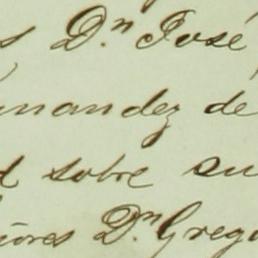 s Dⁿ José
nandez de
d sobre su
iores Dⁿ Grego